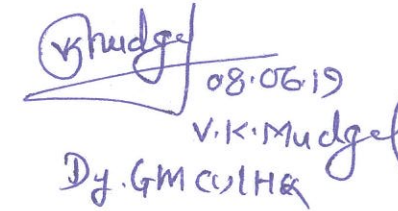 VKMudgel
08.06.19
V.K.Mudgel
Dy.GM